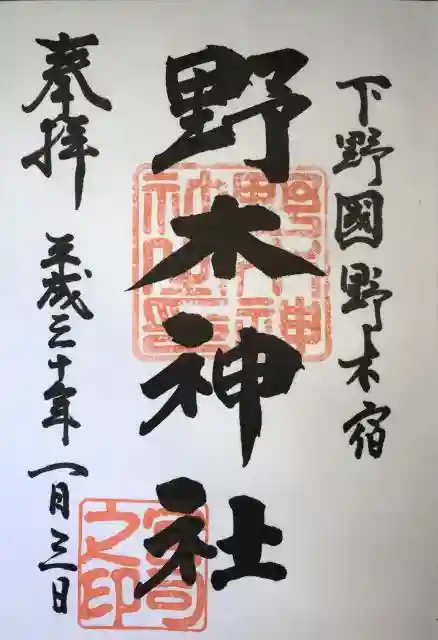 下野國野木宿
野木神社
奉拝
平成三十年一月三日
宮司之印